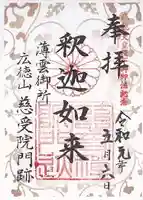 奉拝
令和元年
五月六日
釈迦如来
薄雲御所
広徳山 慈受院門跡